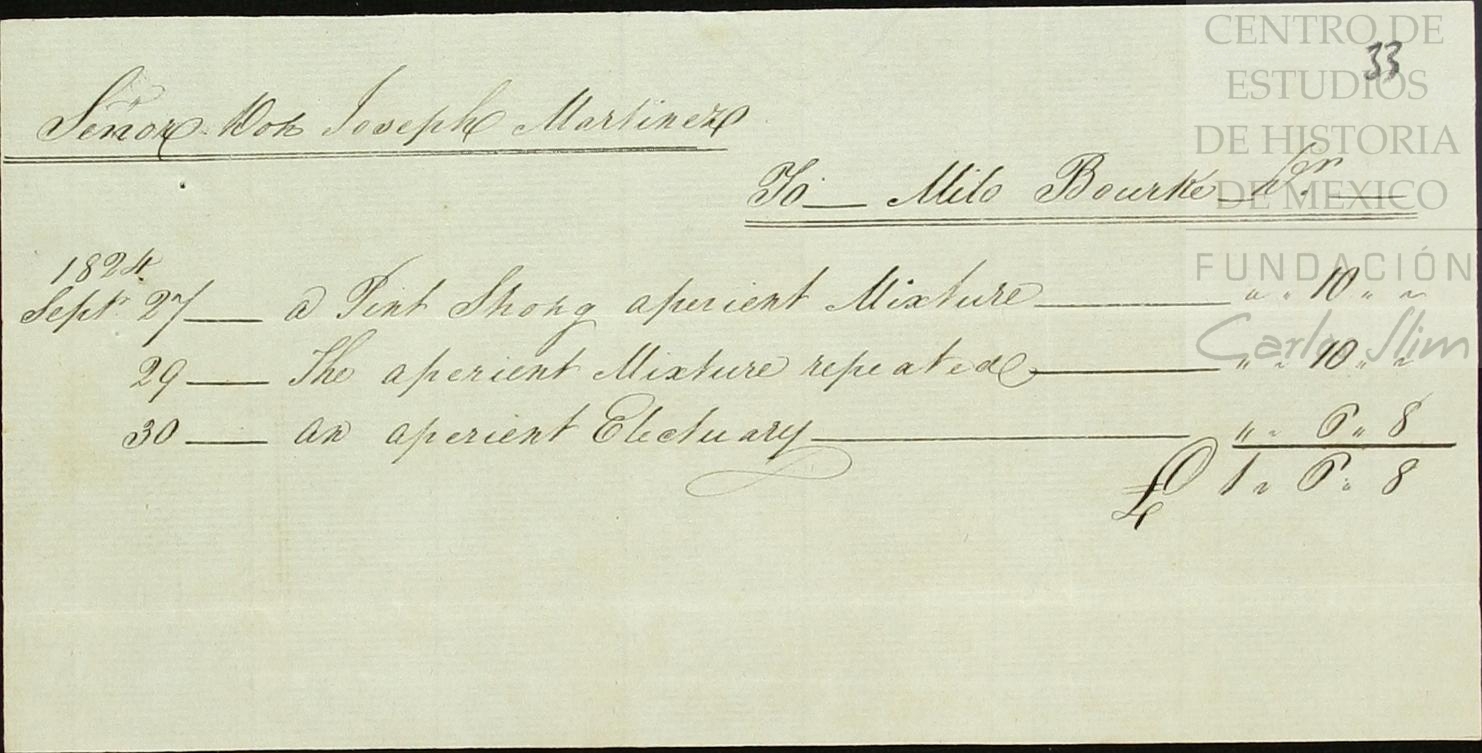 33
Señor Don Joseph Martinez
To — Milo Bourke Dr.
1824
Sept. 27 — a Pint Strong aperient Mixture — " " 10 " "
29 — The aperient Mixture repeated — " " 10 " "
30 — an aperient Electuary — " " 6 " 8
£ 1 " 6 " 8
CENTRO DE
ESTUDIOS
DE HISTORIA
DE MEXICO
FUNDACIÓN
Carlos Slim